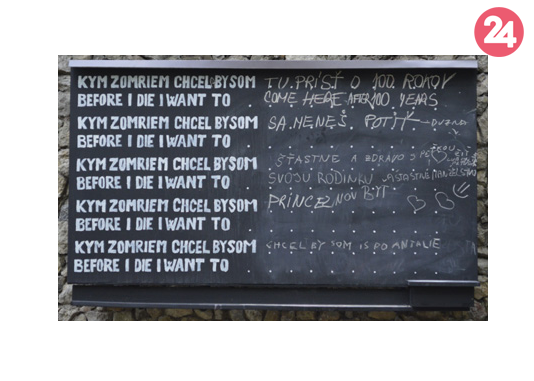 24
KYM ZOMRIEM CHCEL BY SOM TU PRÍSŤ O 100 ROKOV
BEFORE I DIE I WANT TO COME HERE AFTER 100 YEARS
KYM ZOMRIEM CHCEL BY SOM SA MENEŠ. POTIŤ
BEFORE I DIE I WANT TO
KYM ZOMRIEM CHCEL BY SOM ŠŤASTNE A ZDRAVO S
BEFORE I DIE I WANT TO SVOJU RODINKU
KYM ZOMRIEM CHCEL BY SOM PRINCEZNOV BYŤ
BEFORE I DIE I WANT TO
KYM ZOMRIEM CHCEL BY SOM CHCEL BY SOM
BEFORE I DIE I WANT TO